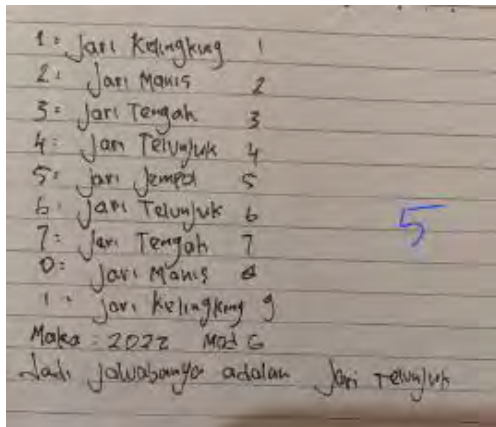 1 = Jari Kelingking 1
2 : Jari Manis 2
3 = Jari Tengah 3
4 = Jari Telunjuk 4
5 = Jari Jempol 5
6 : Jari Telunjuk 6
7 = Jari Tengah 7
0 = Jari Manis
1 = Jari Kelingking 9
5
Maka : 2022 Mod
Jadi jawabanya adalah Jari Telunjuk